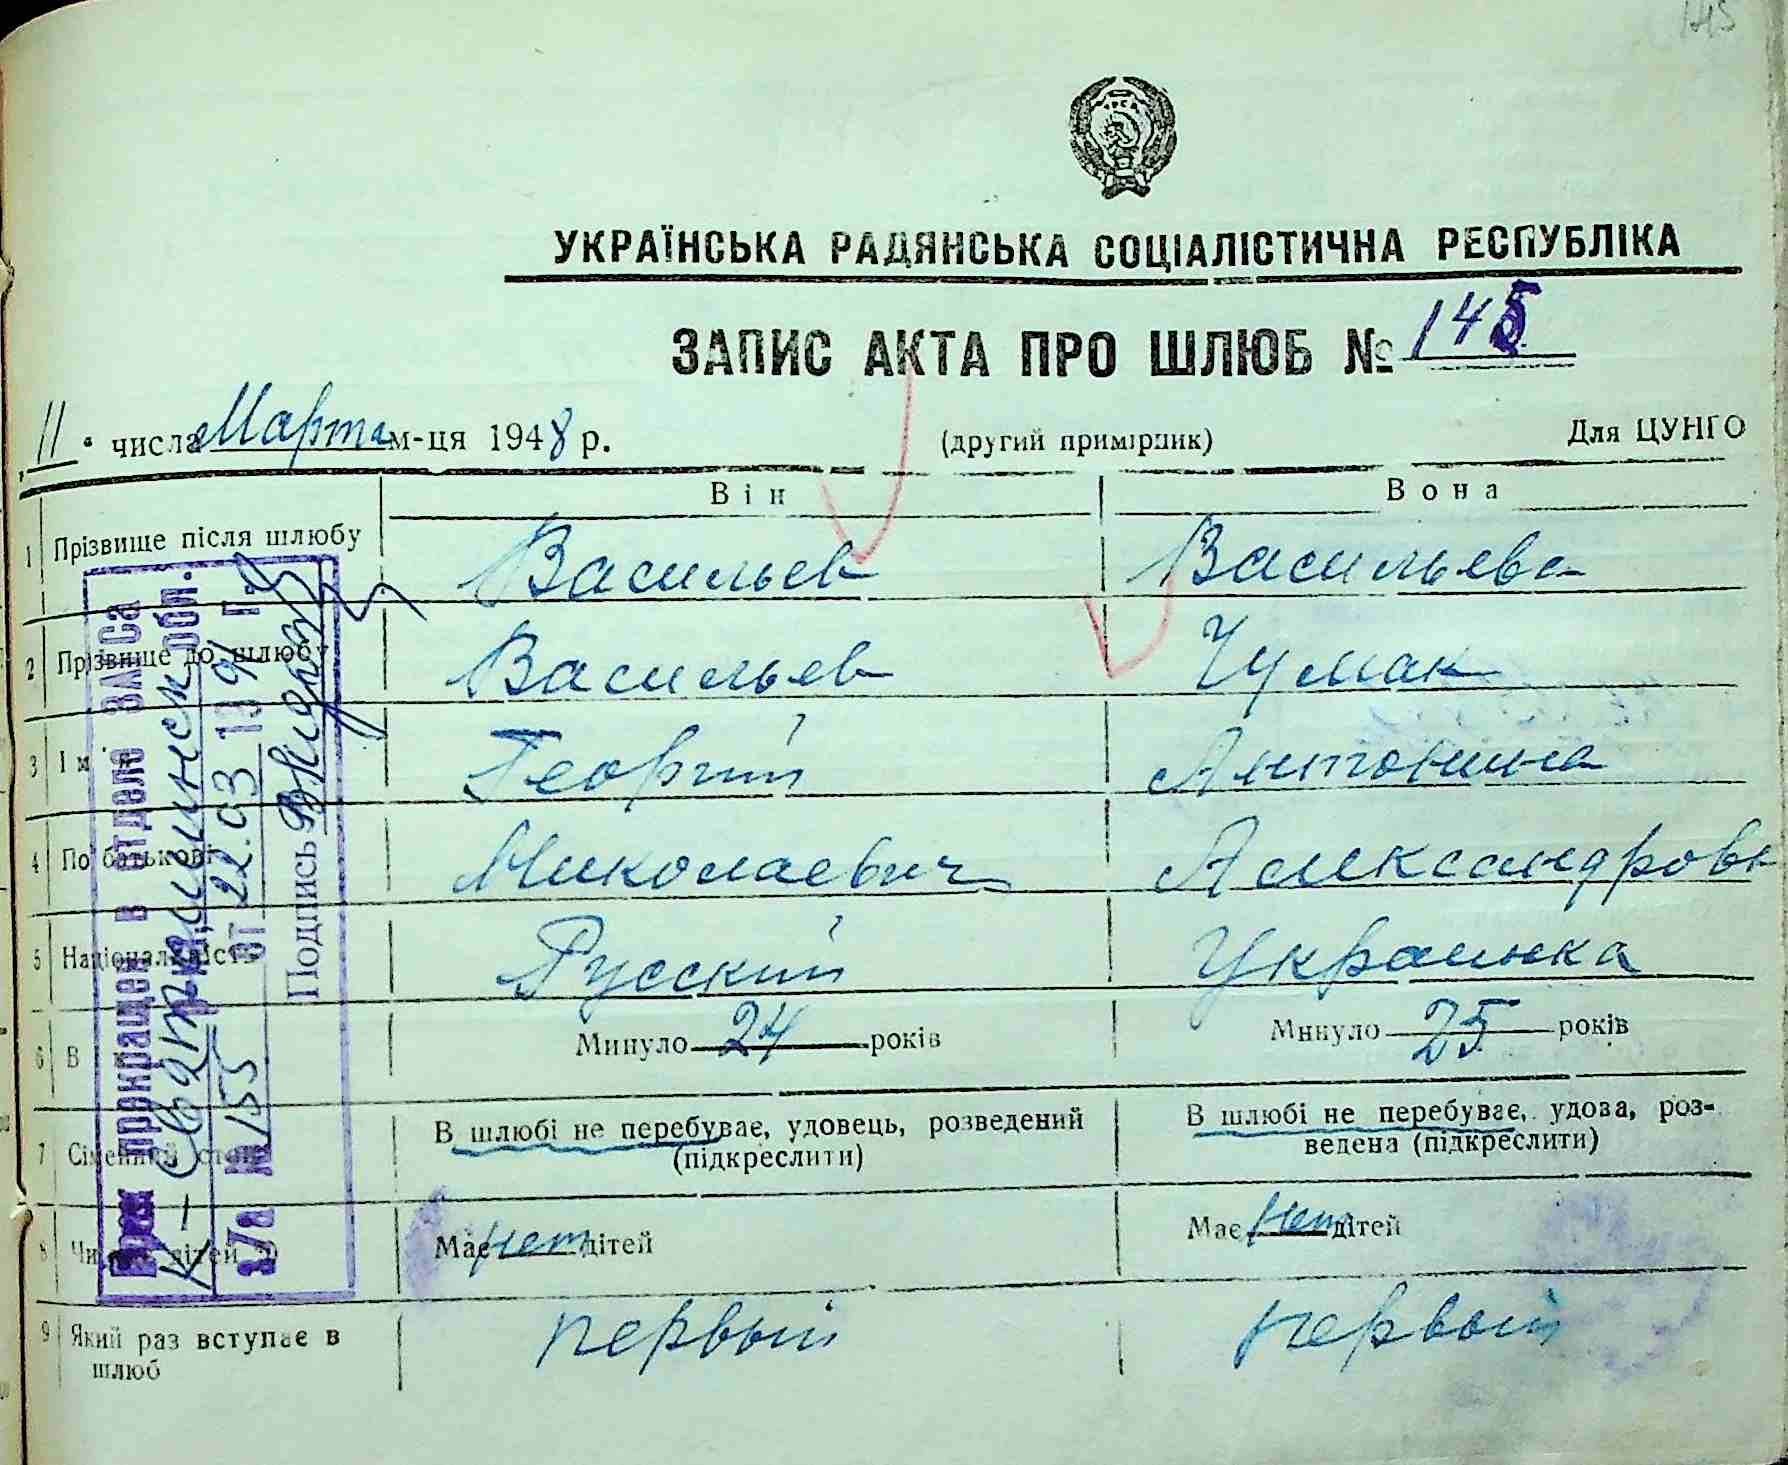 145
УКРАЇНСЬКА РАДЯНСЬКА СОЦІАЛІСТИЧНА РЕСПУБЛІКА
ЗАПИС АКТА ПРО ШЛЮБ № 145
"11" числа Марта м-ця 1948 р. (другий примірник) Для ЦУНГО
Він Вона
1 Прізвище після шлюбу Васильев Васильева
2 Прізвище до шлюбу Васильев Чумак
3 Ім'я Георгий Антонина
4 По батькові Николаевич Александровн
5 Національність Русский Украинка
6 В Минуло 24 років Минуло 25 років
7 Сімейний стан В шлюбі не перебуває, удовець, розведений (підкреслити) В шлюбі не перебуває, удова, роз-
ведена (підкреслити)
8 Число дітей Має нет дітей Має нет дітей
9 Який раз вступає в шлюб первый первый
Брак прокращен в отделе ЗАГСа
обл.
а/з № 155 от 22.03 1991 г.
Подпись